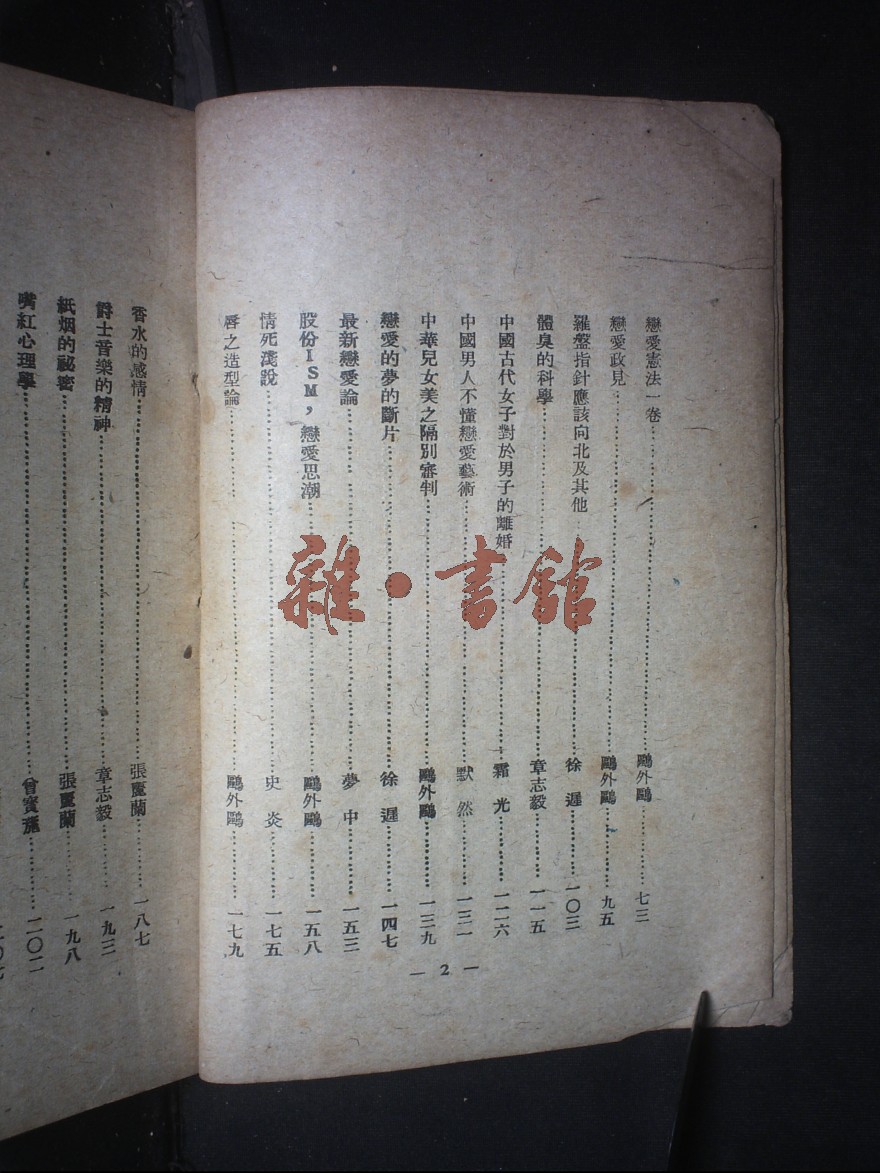 戀愛憲法一卷……鷗外鷗……七三
戀愛政見……鷗外鷗……九五
羅盤指針應該向北及其他……徐遲……一〇三
體臭的科學……章志毅……一一五
中國古代女子對於男子的離婚……霜光……一二六
中國男人不懂戀愛藝術……默然……一三一
中華兒女美之隔別審判……鷗外鷗……一三九
戀愛的夢的斷片……徐遲……一四七
最新戀愛論……夢中……一五三
股份ISM，戀愛思潮……鷗外鷗……一五八
情死淺說……史炎……一七五
唇之造型論……鷗外鷗……一七九
— 2 —
香水的感情……張麗蘭……一八七
爵士音樂的精神……章志毅……一九三
紙烟的祕密……張麗蘭……一九八
嘴紅心理學……曾寶……二〇二
雜·書館